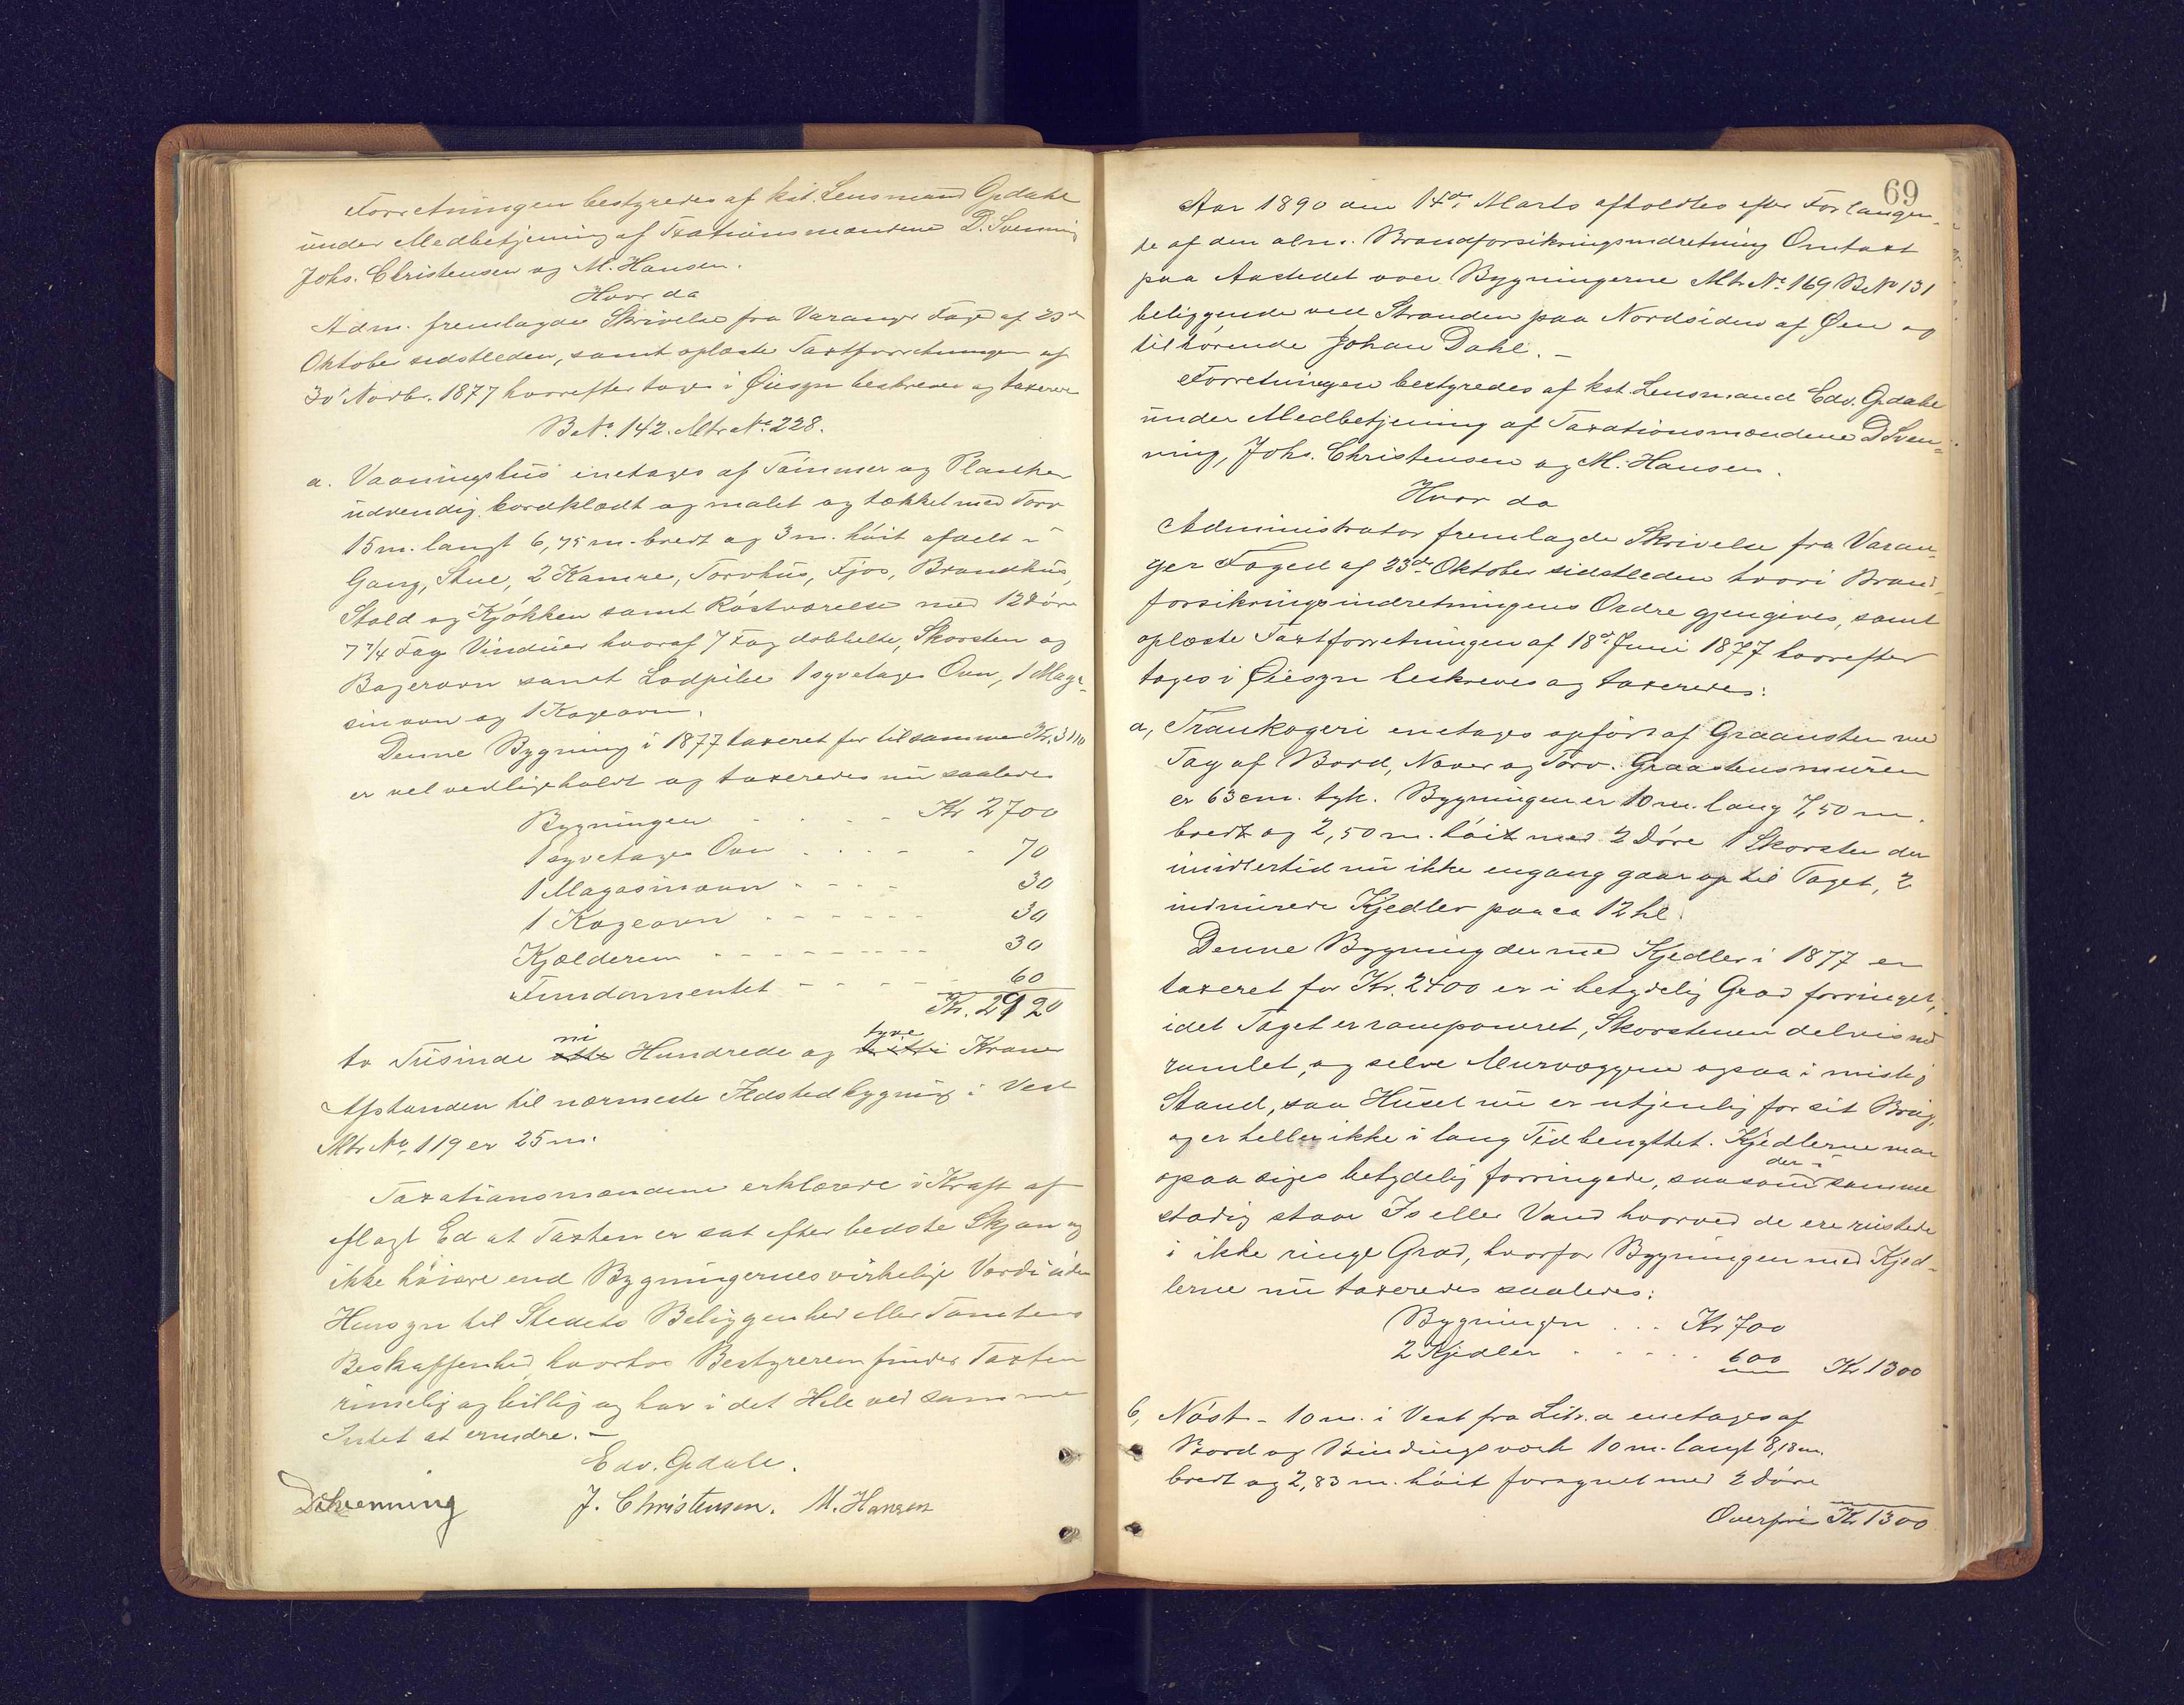 Forretningen bestyredes af kst. Lensmand Opdahl
under Medbetjening af Taxationsmændene D. Svenning
Johs. Christensen og M. Hansen.
Hvor da
Adm. fremlagde Skrivelse fra Varanger Foged af 23de
Oktober sidstleden, samt oplæste Taxtforretningen af
30' Novbr. 1877 hvorefter toges i Øiesyn beskreves og taxeres
B.No. 142. Mtr.No. 228.
a. Vaaningshus enetages af Tømmer og Planker
udvendig bordklædt og malet og tækket med Torv
15 m. langt 6,75 m. bredt og 3 m. høit afdelt i
Gang, Stue, 2 Kamre, Torvhus, Fjøs, Brandhus,
Stald og Kjøkken samt Røstværelse med 12 Døre
7 1/4 Fag Vinduer hvoraf 7 Fag dobbelte, Skorsten og
Bagerovn samt Lodpibe 1 syvetages Ovn, 1 Maga-
sinovn og 1 Kogeovn.
Denne Bygning i 1877 taxeret for tilsammen Kr. 3110
er vel vedligeholdt og taxeredes nu saaledes
Bygningen - - - - Kr 2700
1 syvetages Ovn - - - - 70
1 Magasinovn - - - - 30
1 Kogeovn - - - - - - 30
Kjælderen - - - - - - - - 30
Fundamentet - - - - 60
Kr. 2920
ni tyve
to Tusinde otte Hundrede og nitti Kroner
Afstanden til nærmeste Ildstedbygning i Vest
Mtr No. 119 er 25 m.
Taxationsmændene erklærede i Kraft af
aflagt Ed at Taxten er sat efter bedste Skjøn og
ikke høiere end Bygningernes virkelige Værdi uden
Hensyn til Stedets Beliggenhed eller Tomtens
Beskaffenhed, hvorhos Bestyreren finder Taxten
rimelig og billig og har i det Hele ved samme
Intet at erindre. -
Edv. Opdahl.
D Svenning J. Christensen. M. Hansen
69
Aar 1890 den 14de Marts afholdtes efter Forlangen-
de af den alm. Brandforsikringsindretning Omtaxt
paa Aastedet over Bygningerne Mtr No. 169 B.No 131
beliggende ved Stranden paa Nordsiden af Øen og
tilhørende Johan Dahl. -
Forretningen bestyredes af kst. Lensmand Edv. Opdahl
under Medbetjening af Taxationsmændene D Sven-
ning, Johs. Christensen og M. Hansen.
Hvor da
Administrator fremlagde Skrivelse fra Varan-
ger Foged af 23de Oktober sidstleden hvori Brand-
forsikringsindretningens Ordre gjengives, samt
oplæste Taxtforretningen af 18de Juni 1877 hvorefter
toges i Øiesyn beskreves og taxeredes:
a, Trankogeri enetages opført af Graasten med
Tag af Bord, Næver og Torv. Graastensmuren
er 63 cm. tyk. Bygningen er 10 m. lang 7,50 m.
bredt og 2,50 m. høit med 2 Døre 1 Skorsten der
imidlertid nu ikke engang gaar op til Taget, 2
indmurede Kjedler paa ca 12 hl.
Denne Bygning der med Kjedler i 1877 er
taxeret for Kr. 2400 er i betydelig Grad forringet,
idet Taget er ramponeret, Skorstenen delvis ned
ramlet, og selve Murvæggene ogsaa i mislig
Stand, saa Huset nu er utjenlig for sit Brug,
og er heller ikke i lang Tid benyttet. Kjedlerne maa
der i
ogsaa siges betydelig forringede, saasom samme
stadig staar Is eller Vand hvorved de ere rustede
i ikke ringe Grad, hvorfor Bygningen med Kjed-
lerne nu taxeredes saaledes:
Bygningen . . . Kr 700
2 Kjedler . . . . . 600 Kr 1300
b, Nøst - 10 m. i Vest fra Litr. a enetages af
Bord og Bindingsværk 10 m. langt 8,18 m.
bredt og 2,83 m. høit forsynet med 2 Døre
Overføres Kr 1300